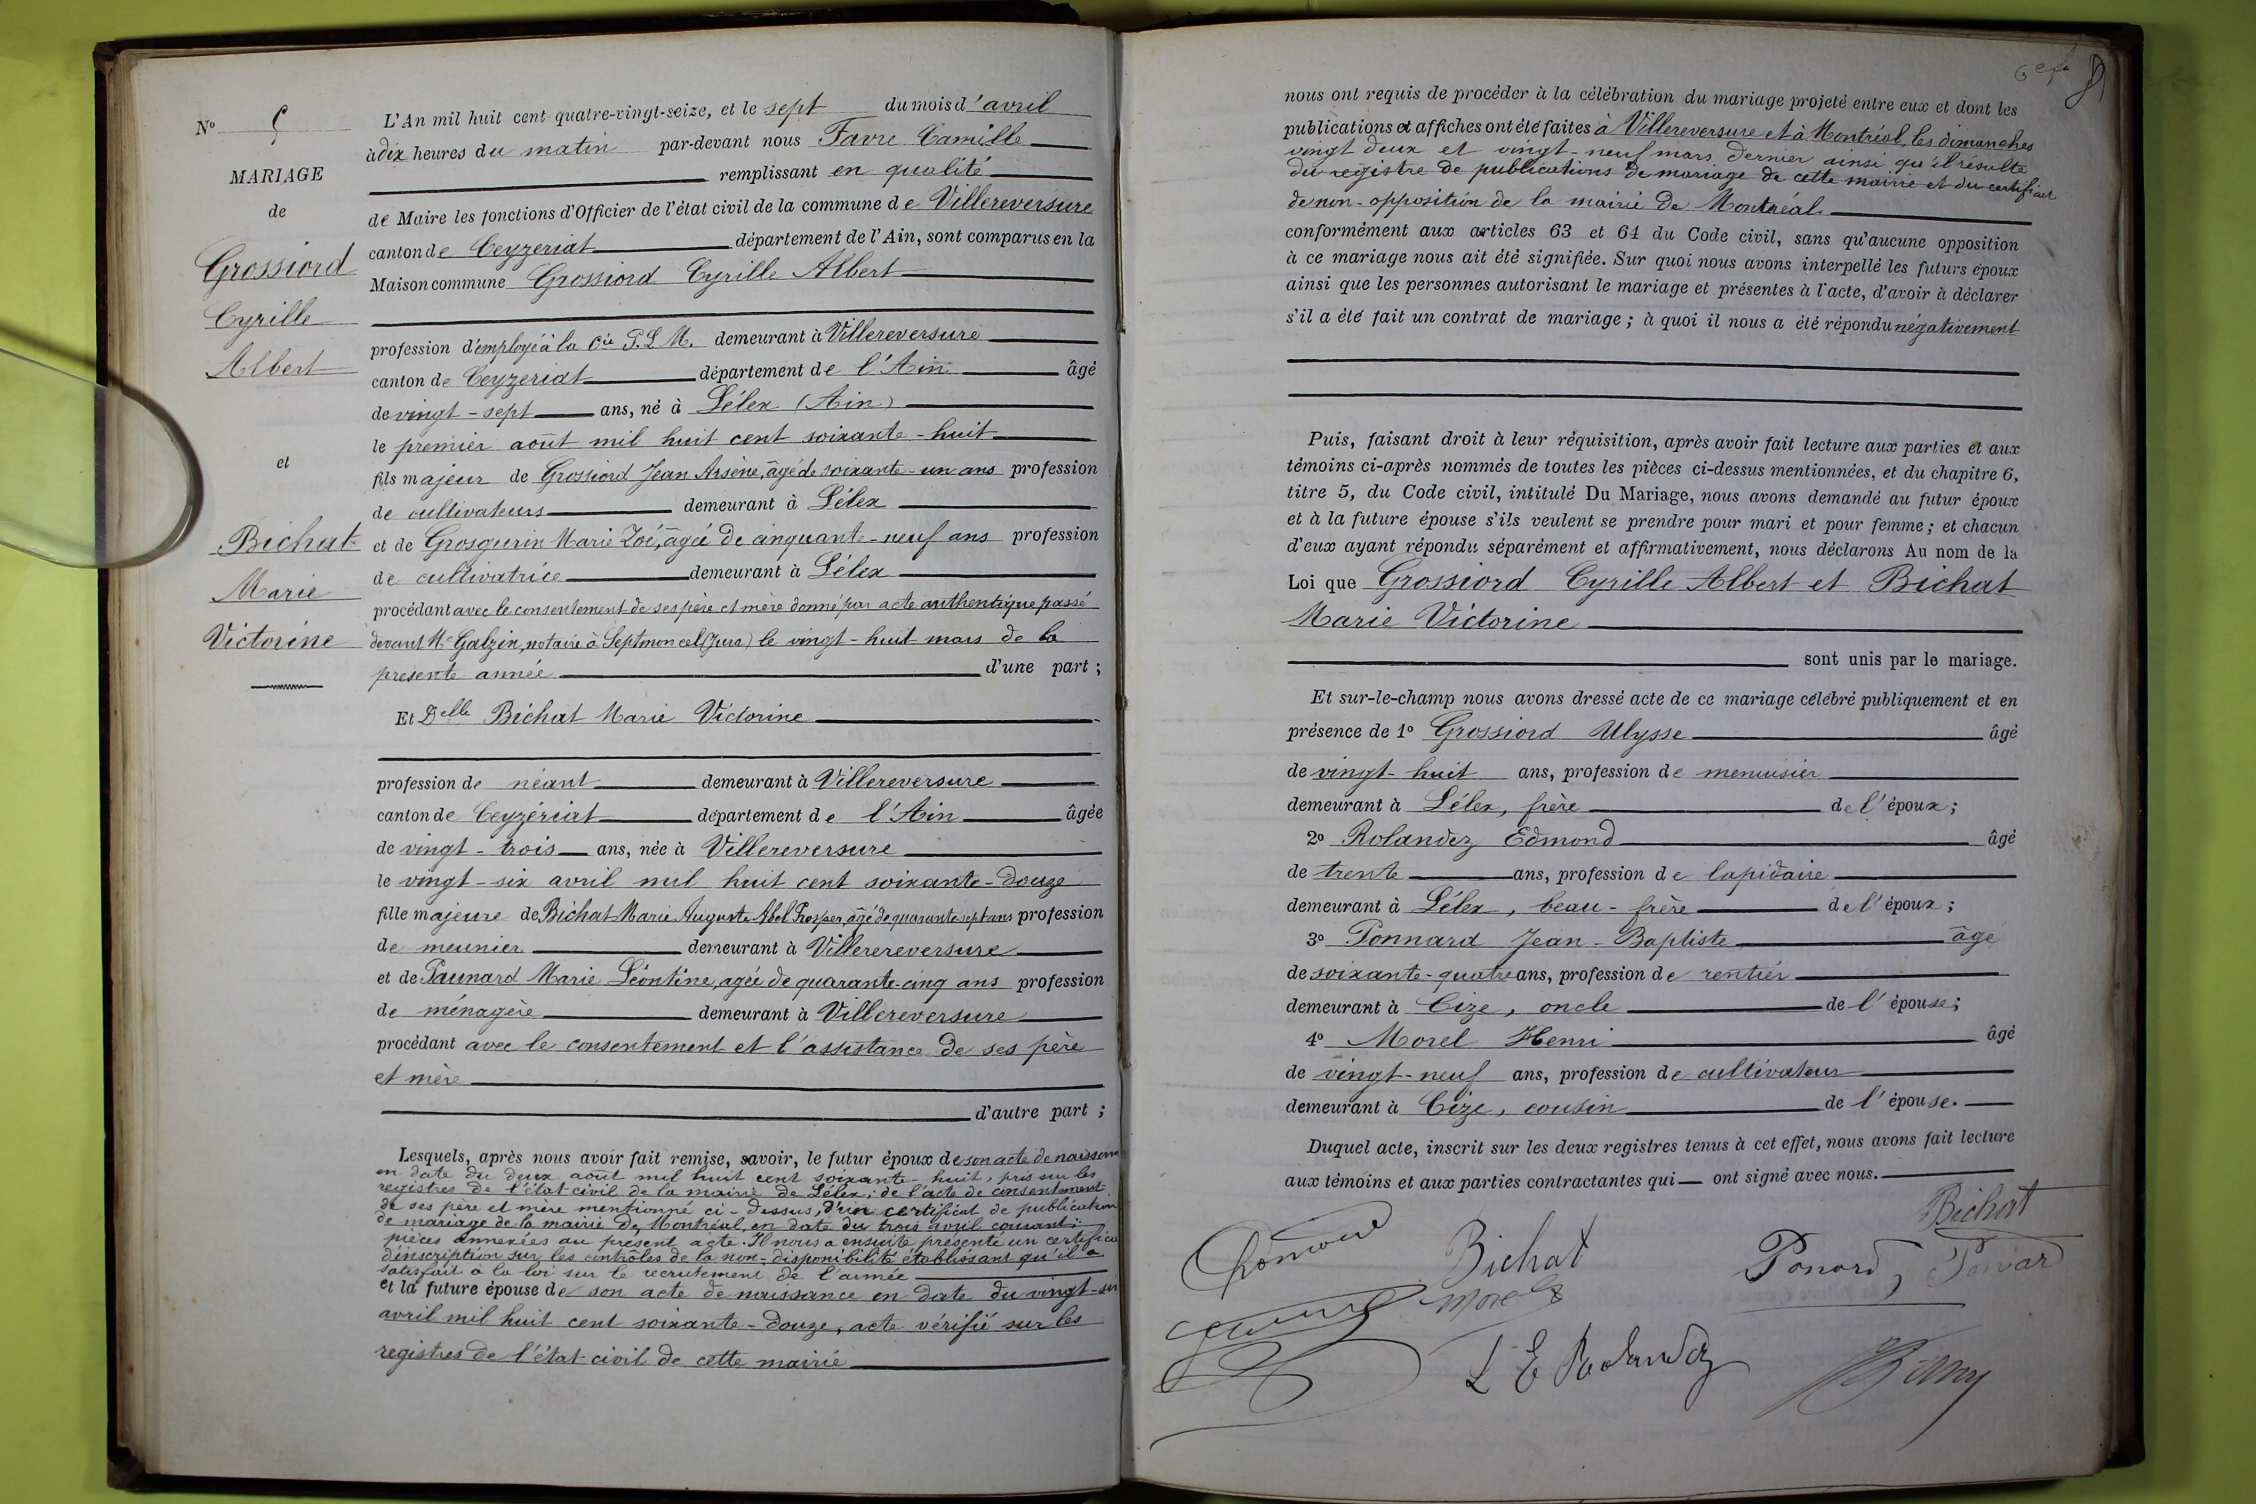 N° 5
MARIAGE
de
Grossiord
Cyrille
Albert
et
Bichat
Marie
Victorine
L'An mil huit cent quatre-vingt-seize, et le sept du mois d'avril
à dix heures du matin par-devant nous Favre Camille
remplissant en qualité
de Maire les fonctions d'Officier de l'état civil de la commune de Villereversure
canton de Ceyzeriat département de l'Ain, sont comparus en la
Maison commune Grossiord Cyrille Albert
profession d'employé à la Cie P.L.M. demeurant à Villereversure
canton de Ceyzeriat département de l'Ain âgé
de vingt-sept ans, né à Lélex (Ain)
le premier août mil huit cent soixante-huit
fils majeur de Grossiord Jean Arsène, âgé de soixante-un ans profession
de cultivateurs demeurant à Lélex
et de Grosgurin Marie Zoé, âgée de cinquante-neuf ans profession
de cultivatrice demeurant à Lélex
procédant avec le consentement de ses père et mère donné par acte authentique passé
devant Me Galzin, notaire à Septmoncel (Jura) le vingt-huit mars de la
présente année d'une part ;
Et Delle Bichat Marie Victorine
profession de néant demeurant à Villereversure
canton de Ceyzériat département de l'Ain âgée
de vingt-trois ans, née à Villereversure
le vingt-six avril mil huit cent soixante-douze
fille majeure de Bichat Marie Auguste Abel Prosper, âgé de quarante sept ans profession
de meunier demeurant à Villerereversure
et de Paunard Marie Léontine, agée de quarante-cinq ans profession
de ménagère demeurant à Villereversure
procédant avec le consentement et l'assistance de ses père
et mère
d'autre part ;
Lesquels, après nous avoir fait remise, savoir, le futur époux de son acte de naissance
en date du deux août mil huit cent soixante-huit, pris sur les
registres de l'état civil de la mairie de Lélex ; de l'acte de consentement
de ses père et mère mentionné ci-dessus, d'un certificat de publication
de mariage de la mairie de Montréal, en date du trois avril courant ;
pièces annexées au présent acte. Il nous a ensuite présenté un certificat
d'inscription sur les contrôles de la non-disponibilité établissant qu'il a
satisfait à la loi sur le recrutement de l'armée
et la future épouse de son acte de naissance en date du vingt-six
avril mil huit cent soixante-douze, acte vérifié sur les
registres de l'état civil de cette mairie
nous ont requis de procéder à la célébration du mariage projeté entre eux et dont les
publications et affiches ont été faites à Villereversure et à Montréal, les dimanches
vingt deux et vingt-neuf mars dernier ainsi qu'il résulte
du registre de publications de mariage de cette mairie et du certificat
de non-opposition de la mairie de Montréal
conformément aux articles 63 et 64 du Code civil, sans qu'aucune opposition
à ce mariage nous ait été signifiée. Sur quoi nous avons interpellé les futurs époux
ainsi que les personnes autorisant le mariage et présentes à l'acte, d'avoir à déclarer
s'il a été fait un contrat de mariage ; à quoi il nous a été répondu négativement
Puis, faisant droit à leur réquisition, après avoir fait lecture aux parties et aux
témoins ci-après nommés de toutes les pièces ci-dessus mentionnées, et du chapitre 6,
titre 5, du Code civil, intitulé Du Mariage, nous avons demandé au futur époux
et à la future épouse s'ils veulent se prendre pour mari et pour femme ; et chacun
d'eux ayant répondu séparément et affirmativement, nous déclarons Au nom de la
Loi que Grossiord Cyrille Albert et Bichat
Marie Victorine
sont unis par le mariage.
Et sur-le-champ nous avons dressé acte de ce mariage célébré publiquement et en
présence de 1° Grossiord Ulysse âgé
de vingt-huit ans, profession de menuisier
demeurant à Lélex, frère de l'époux ;
2° Rolandez Edmond âgé
de trente ans, profession de lapidaire
demeurant à Lélex, beau-frère de l'époux ;
3° Ponnard Jean-Baptiste âgé
de soixante-quatre ans, profession de rentier
demeurant à Cize, oncle de l'épouse ;
4° Morel Henri âgé
de vingt-neuf ans, profession de cultivateur
demeurant à Cize, cousin de l'épouse.
Duquel acte, inscrit sur les deux registres tenus à cet effet, nous avons fait lecture
aux témoins et aux parties contractantes qui ont signé avec nous.
Bichat
Bichat Ponard
Morel
L E Rolandez